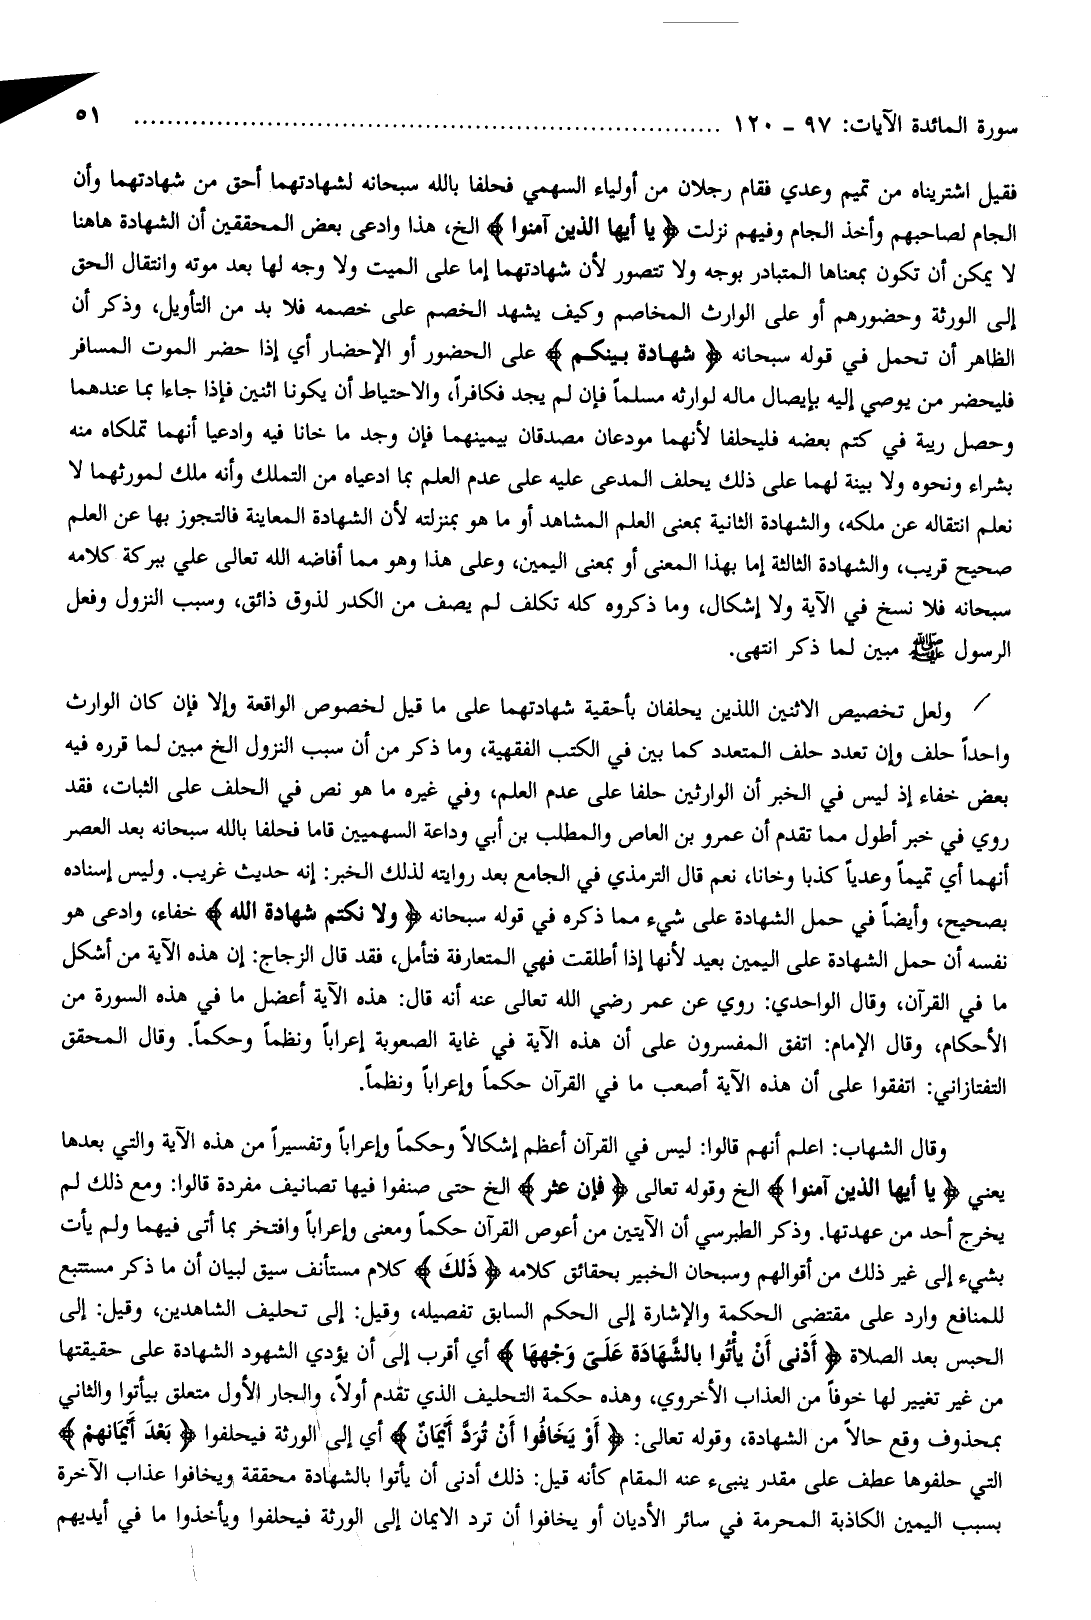 سورة المائدة الآيات: ٩٧ ـ ١٢٠ ........................................................................ ٥١
فقيل اشتريناه من تميم وعدي فقام رجلان من أولياء السهمي فحلفا بالله سبحانه لشهادتهما أحق من شهادتهما وأن
الجام لصاحبهم وأخذ الجام وفيهم نزلت ﴿ يا أيها الذين آمنوا ﴾ الخ، هذا وادعى بعض المحققين أن الشهادة هاهنا
لا يمكن أن تكون بمعناها المتبادر بوجه ولا تتصور لأن شهادتهما إما على الميت ولا وجه لها بعد موته وانتقال الحق
إلى الورثة وحضورهم أو على الوارث المخاصم وكيف يشهد الخصم على خصمه فلا بد من التأويل، وذكر أن
الظاهر أن تحمل في قوله سبحانه ﴿ شهادة بينكم ﴾ على الحضور أو الإحضار أي إذا حضر الموت المسافر
فليحضر من يوصي إليه بإيصال ماله لوارثه مسلماً فإن لم يجد فكافراً، والاحتياط أن يكونا اثنين فإذا جاءا بما عندهما
وحصل ريبة في كتم بعضه فليحلفا لأنهما مودعان مصدقان بيمينهما فإن وجد ما خانا فيه وادعيا أنهما تملكاه منه
بشراء ونحوه ولا بينة لهما على ذلك يحلف المدعى عليه على عدم العلم بما ادعياه من التملك وأنه ملك لمورثهما لا
نعلم انتقاله عن ملكه، والشهادة الثانية بمعنى العلم المشاهد أو ما هو بمنزلته لأن الشهادة المعاينة فالتجوز بها عن العلم
صحيح قريب، والشهادة الثالثة إما بهذا المعنى أو بمعنى اليمين، وعلى هذا وهو مما أفاضه الله تعالى علي ببركة كلامه
سبحانه فلا نسخ في الآية ولا إشكال، وما ذكروه كله تكلف لم يصف من الكدر لذوق ذائق، وسبب النزول وفعل
الرسول ﷺ مبين لما ذكر انتهى.
ولعل تخصيص الاثنين اللذين يحلفان بأحقية شهادتهما على ما قيل لخصوص الواقعة وإلا فإن كان الوارث
واحداً حلف وإن تعدد حلف المتعدد كما بين في الكتب الفقهية، وما ذكر من أن سبب النزول الخ مبين لما قرره فيه
بعض خفاء إذ ليس في الخبر أن الوارثين حلفا على عدم العلم، وفي غيره ما هو نص في الحلف على الثبات، فقد
روي في خبر أطول مما تقدم أن عمرو بن العاص والمطلب بن أبي وداعة السهميين قاما فحلفا بالله سبحانه بعد العصر
أنهما أي تميماً وعدياً كذبا وخانا، نعم قال الترمذي في الجامع بعد روايته لذلك الخبر: إنه حديث غريب. وليس إسناده
بصحيح، وأيضاً في حمل الشهادة على شيء مما ذكره في قوله سبحانه ﴿ ولا نكتم شهادة الله ﴾ خفاء، وادعى هو
نفسه أن حمل الشهادة على اليمين بعيد لأنها إذا أطلقت فهي المتعارفة فتأمل، فقد قال الزجاج: إن هذه الآية من أشكل
ما في القرآن، وقال الواحدي: روي عن عمر رضي الله تعالى عنه أنه قال: هذه الآية أعضل ما في هذه السورة من
الأحكام، وقال الإمام: اتفق المفسرون على أن هذه الآية في غاية الصعوبة إعراباً ونظماً وحكماً. وقال المحقق
التفتازاني: اتفقوا على أن هذه الآية أصعب ما في القرآن حكماً وإعراباً ونظماً.
وقال الشهاب: اعلم أنهم قالوا: ليس في القرآن أعظم إشكالاً وحكماً وإعراباً وتفسيراً من هذه الآية والتي بعدها
يعني ﴿ يا أيها الذين آمنوا ﴾ الخ وقوله تعالى ﴿ فإن عثر ﴾ الخ حتى صنفوا فيها تصانيف مفردة قالوا: ومع ذلك لم
يخرج أحد من عهدتها. وذكر الطبرسي أن الآيتين من أعوص القرآن حكماً ومعنى وإعراباً وافتخر بما أتى فيهما ولم يأت
بشيء إلى غير ذلك من أقوالهم وسبحان الخبير بحقائق كلامه ﴿ ذَلكَ ﴾ كلام مستأنف سيق لبيان أن ما ذكر مستتبع
للمنافع وارد على مقتضى الحكمة والإشارة إلى الحكم السابق تفصيله، وقيل: إلى تحليف الشاهدين، وقيل: إلى
الحبس بعد الصلاة ﴿ أَدْنى أَنْ يأْتُوا بالشَّهَادَة عَلَىٰ وَجْههَا ﴾ أي أقرب إلى أن يؤدي الشهود الشهادة على حقيقتها
من غير تغيير لها خوفاً من العذاب الأخروي، وهذه حكمة التحليف الذي تقدم أولاً، والجار الأول متعلق بيأتوا والثاني
بمحذوف وقع حالاً من الشهادة، وقوله تعالى: ﴿ أَوْ يَخَافُوا أَنْ تُرَدَّ أَيْمَانٌ ﴾ أي إلى الورثة فيحلفوا ﴿ بَعْدَ أَيْمَانهمْ ﴾
التي حلفوها عطف على مقدر ينبىء عنه المقام كأنه قيل: ذلك أدنى أن يأتوا بالشهادة محققة ويخافوا عذاب الآخرة
بسبب اليمين الكاذبة المحرمة في سائر الأديان أو يخافوا أن ترد الايمان إلى الورثة فيحلفوا ويأخذوا ما في أيديهم